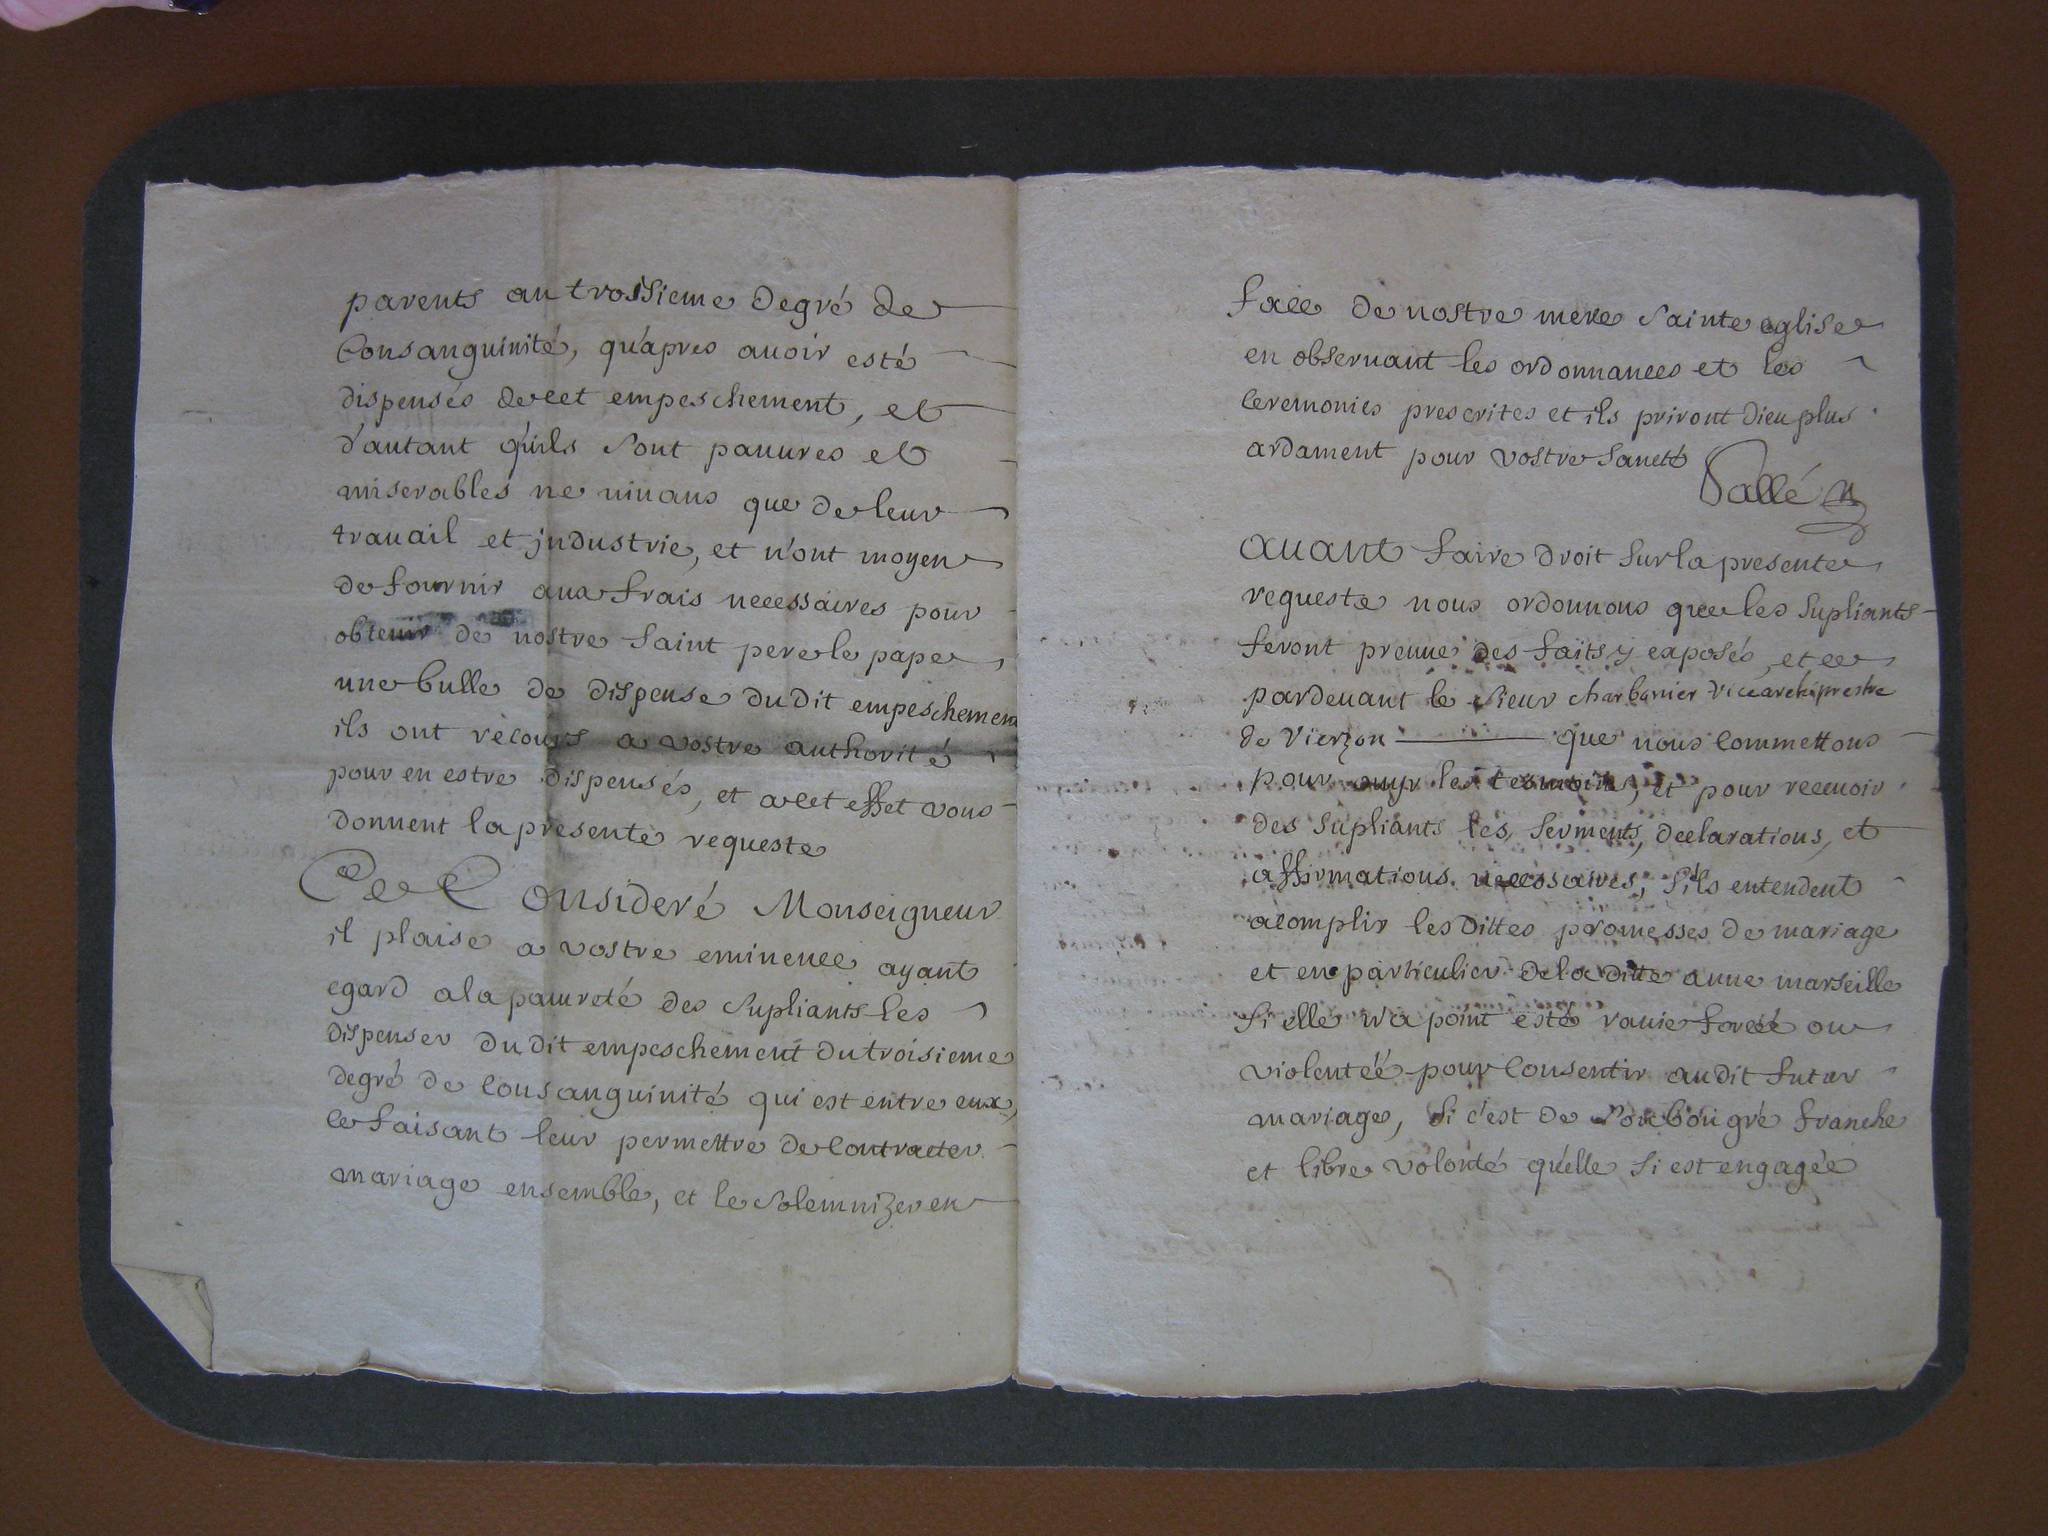 parents au troisieme degré de
Consanguinité, qu'apres auoir esté
dispensés de cet empeschement, et
d'autant qu'ils sont pauures et
miserables ne viuans que de leur
trauail et jndustrie, et n'ont moyen
de fournir aux frais necessaires pour
obtenir de nostre saint pere le pape
une bulle de dispense du dit empeschement
ils ont recours a vostre authorité
pour en estre dispensés, et a cet effet vous
donnent la presente requeste
Ce Consideré Monseigneur
il plaise a vostre eminence ayant
egard a la pauureté des supliants les
dispenser du dit empeschement du troisieme
degré de consanguinité qui est entre eux,
ce faisant leur permettre de contracter
mariage ensemble, et le solemnizer en
face de nostre mere sainte eglise
en obseruant les ordonnances et les
ceremonies prescrites et ils priront dieu plus
ardament pour vostre santé
Pallé
auant faire droit sur la presente
requeste nous ordonnons que les supliants
feront preuue des faits y exposés, et ce
pardeuant le sieur charbonier vicearchiprestre
de Vierzon que nous commettons
pour ouyr les tesmoins, et pour receuoir
des supliants les serments, declarations, et
affirmations necessaires, s'ils entendent
acomplir les dittes promesses de mariage
et en particulier de la ditte anne marseille
si elle n'a point esté rauie forcée ou
violentée pour consentir au dit futur
mariage, si c'est de son bon gré franche
et libre volonté qu'elle si est engagée